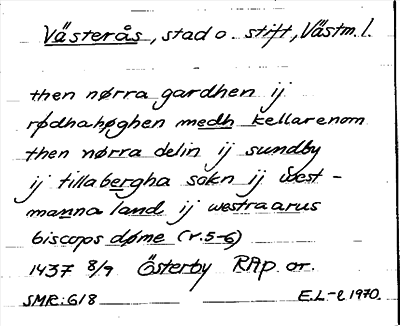 Västerås, stad o. stift, Västm. l.
then nørra gardhen ij
rødhahøghen medh kellarenom
then nørra delin ij sundby
ij tillabergha sokn ij west-
manna land ij westraarus
biscops døme (r. 5-6)
1437 8/9 Österby RAp. or.
SMR: 618 E.L-e 1970.